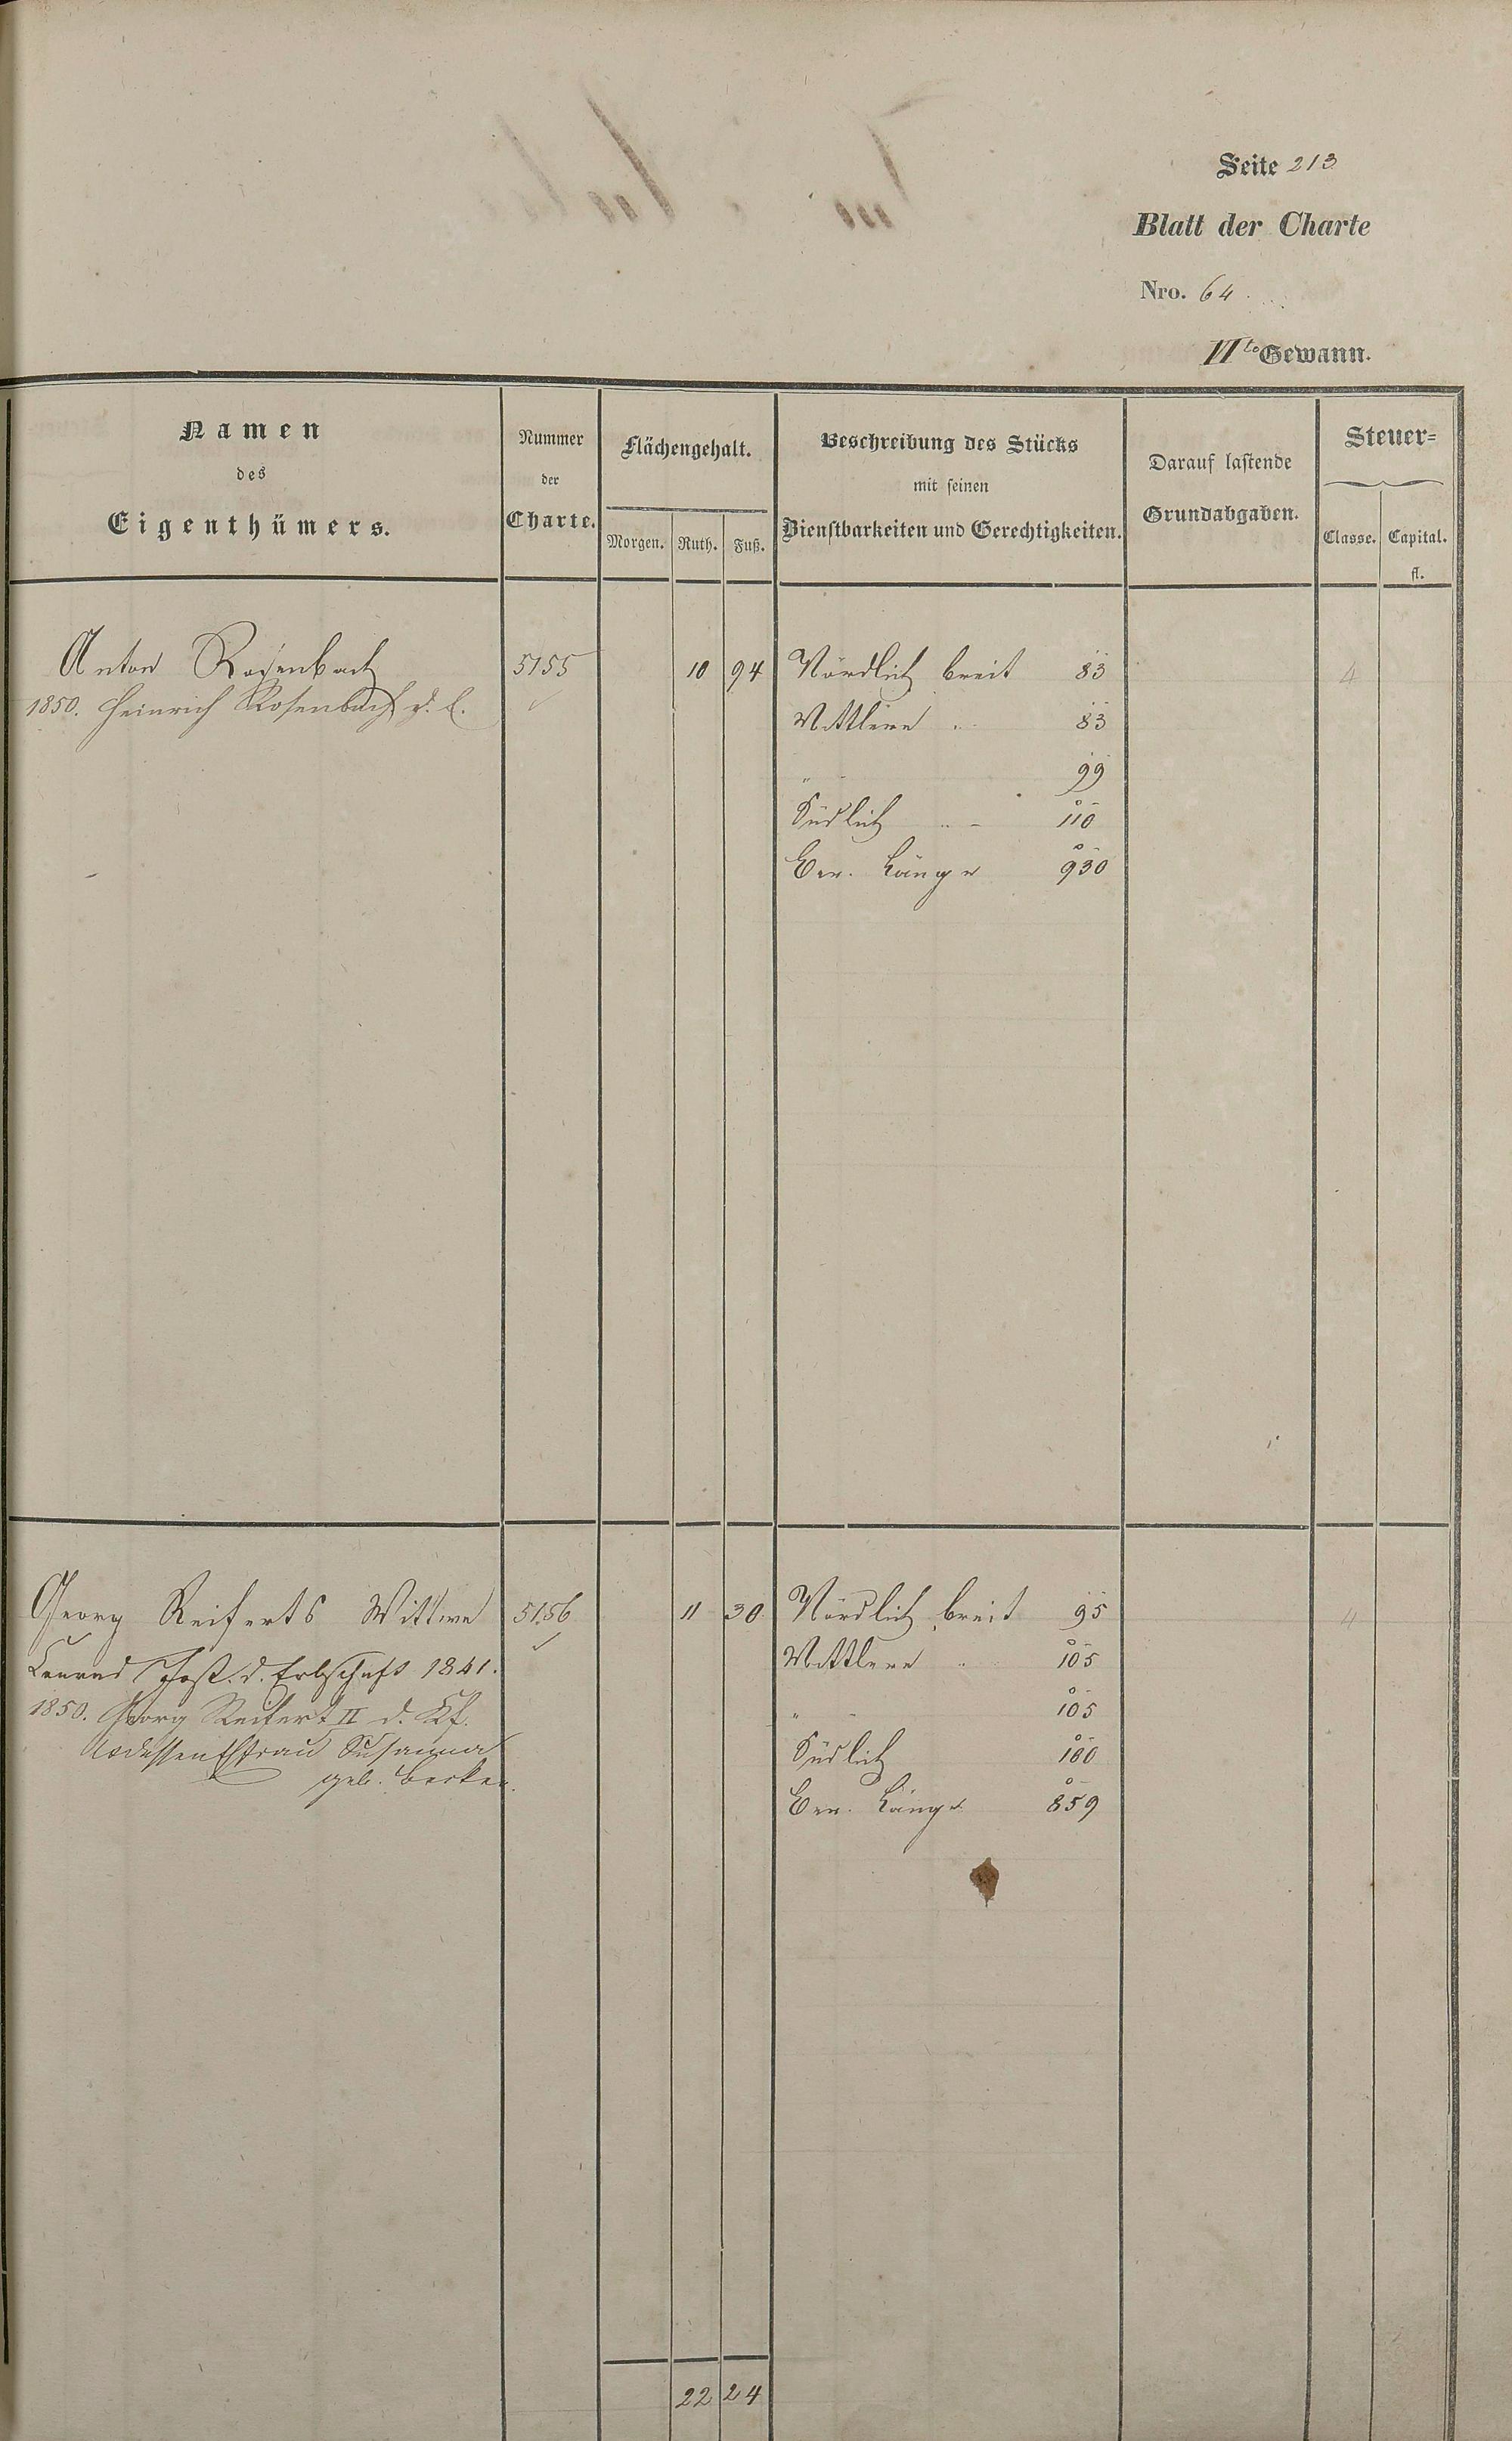 Seite 213
Blatt der Charte
Nro. 64
VIte Gewann.
Namen
des
Eigenthümers.
Nummer
der
Charte.
Flächengehalt.
Morgen. Ruth. Fuß.
Beschreibung des Stücks
mit seinen
Dienstbarkeiten und Gerechtigkeiten.
Darauf lastende
Grundabgaben.
Steuer=
Classe. Capital.
fl.
Anton Rosenbach 5155 10 94 Nördlich breit 83 4
1850. Heinrich Rosenbach d. E. Mittlere " 83
" 99
Südlich " - 110
Ew. Länge 930
Georg Reiferts Wittwe 5156 11 30 Nördlich breit 95 4
Conrad Jost. d. Erbschaft 1841. Mittlere " 105
1850. Georg Reifert II d. Kf. " 105
Ehefrau Susanna Südlich 100
geb. Becker. Ew. Länge 859
22 24